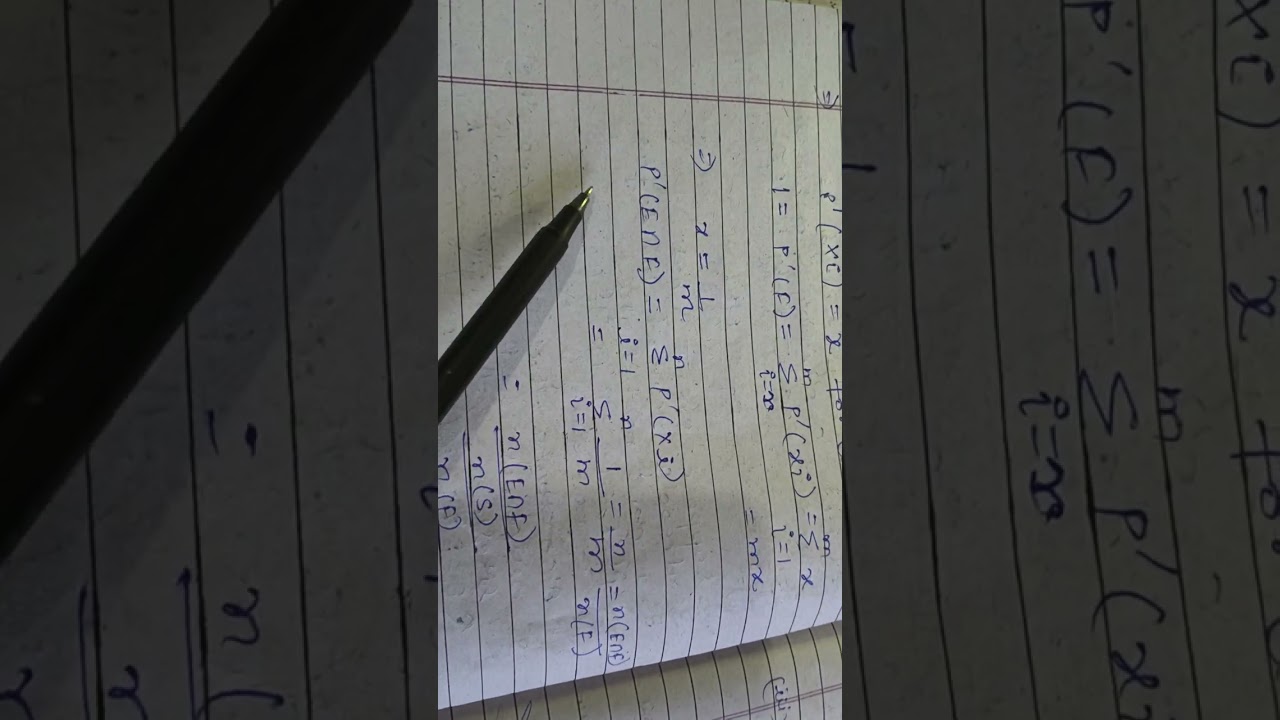 P'(xi) = x
⇒ 1 = P'(F) = Σ_{i=x}^{m} P'(xi) = Σ_{i=1}^{m} x
= mx
⇒ x = 1/m
P'(E∩F) = Σ_{i=1}^{n} P'(xi)
= Σ_{i=1}^{n} 1/m = n/m = n(E∩F)/n(F)
= n(E∩F)/n(S)
n(F)
(iii)